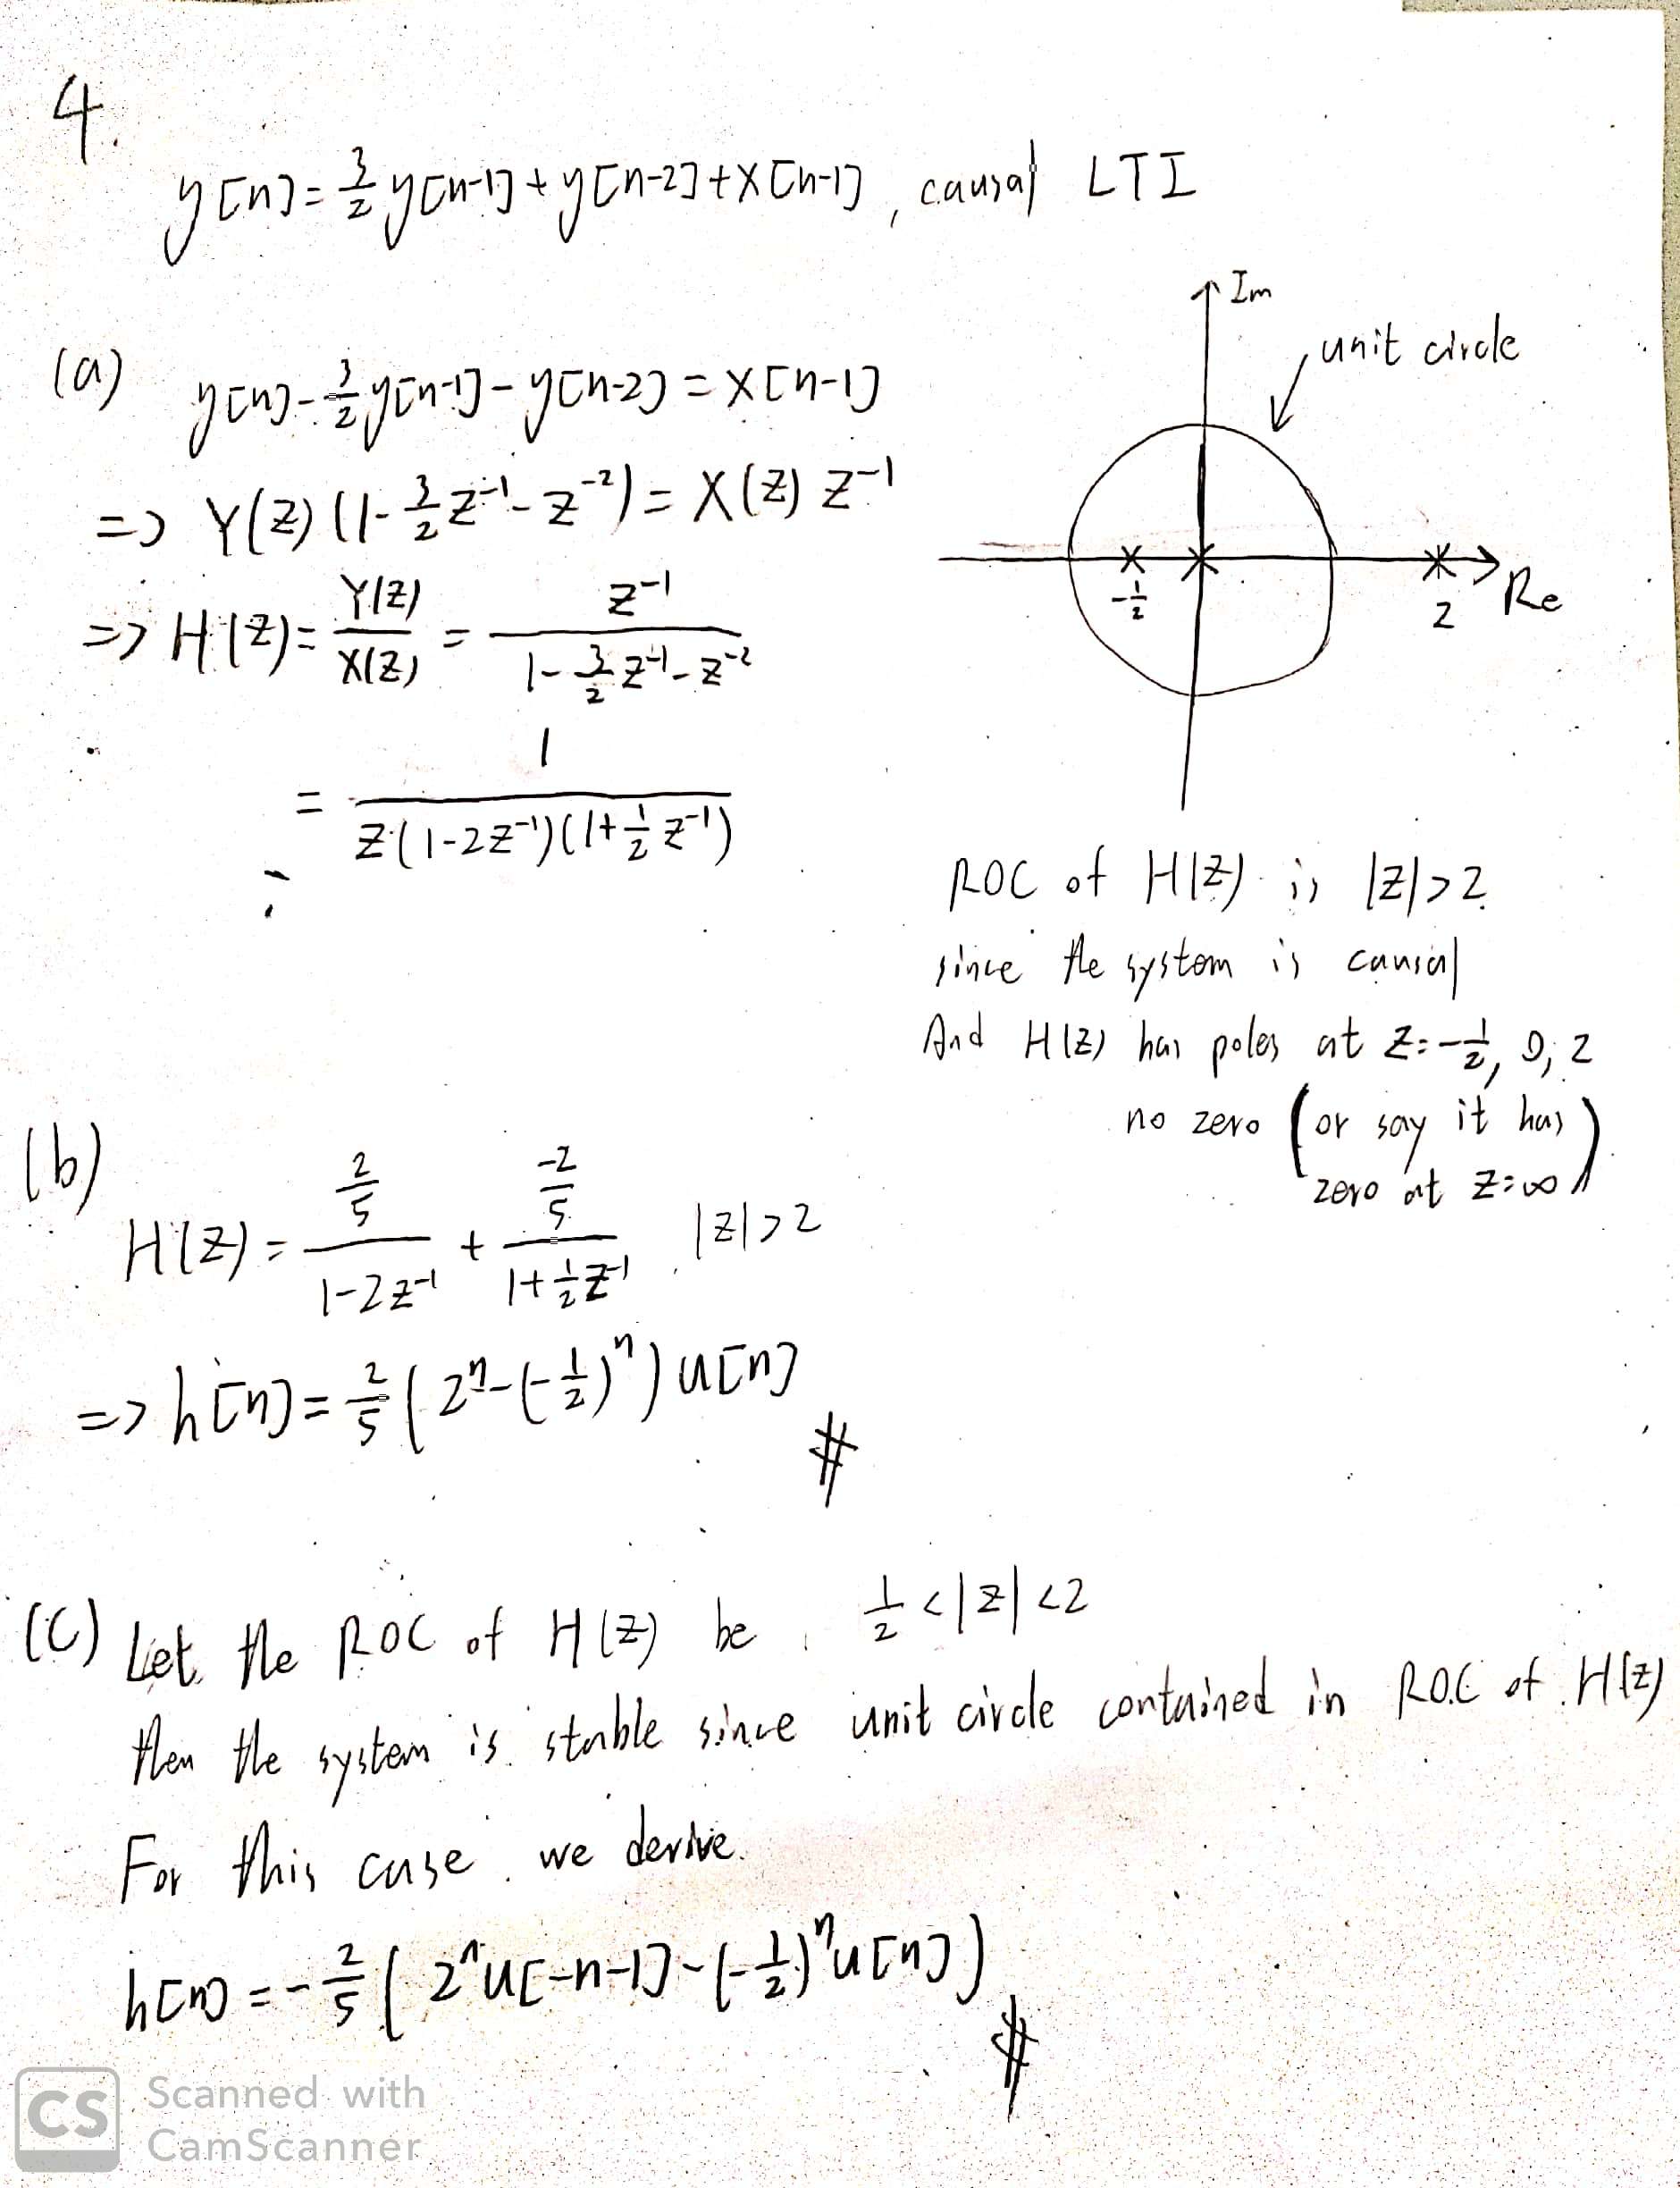 4.
y[n]=3/2 y[n-1]+y[n-2]+x[n-1], causal LTI
Im
unit circle
-1/2
2
Re
(a) y[n]-3/2 y[n-1]-y[n-2]=x[n-1]
=> Y(z)(1-3/2 z^-1-z^-2)=X(z) z^-1
=> H(z)=Y(z)/X(z)=z^-1/(1-3/2 z^-1-z^-2)
=1/(z(1-2z^-1)(1+1/2 z^-1))
ROC of H(z) is |z|>2
since the system is causal
And H(z) has poles at z=-1/2, 0, 2
no zero (or say it has
zero at z=∞)
(b)
H(z)=(2/5)/(1-2z^-1)+(-2/5)/(1+1/2 z^-1), |z|>2
=> h[n]=2/5(2^n-(-1/2)^n)u[n] #
(c) Let the ROC of H(z) be 1/2<|z|<2
then the system is stable since unit circle contained in ROC of H(z)
For this case we derive.
h[n]=-2/5(2^n u[-n-1]-(-1/2)^n u[n]) #
CS Scanned with
CamScanner